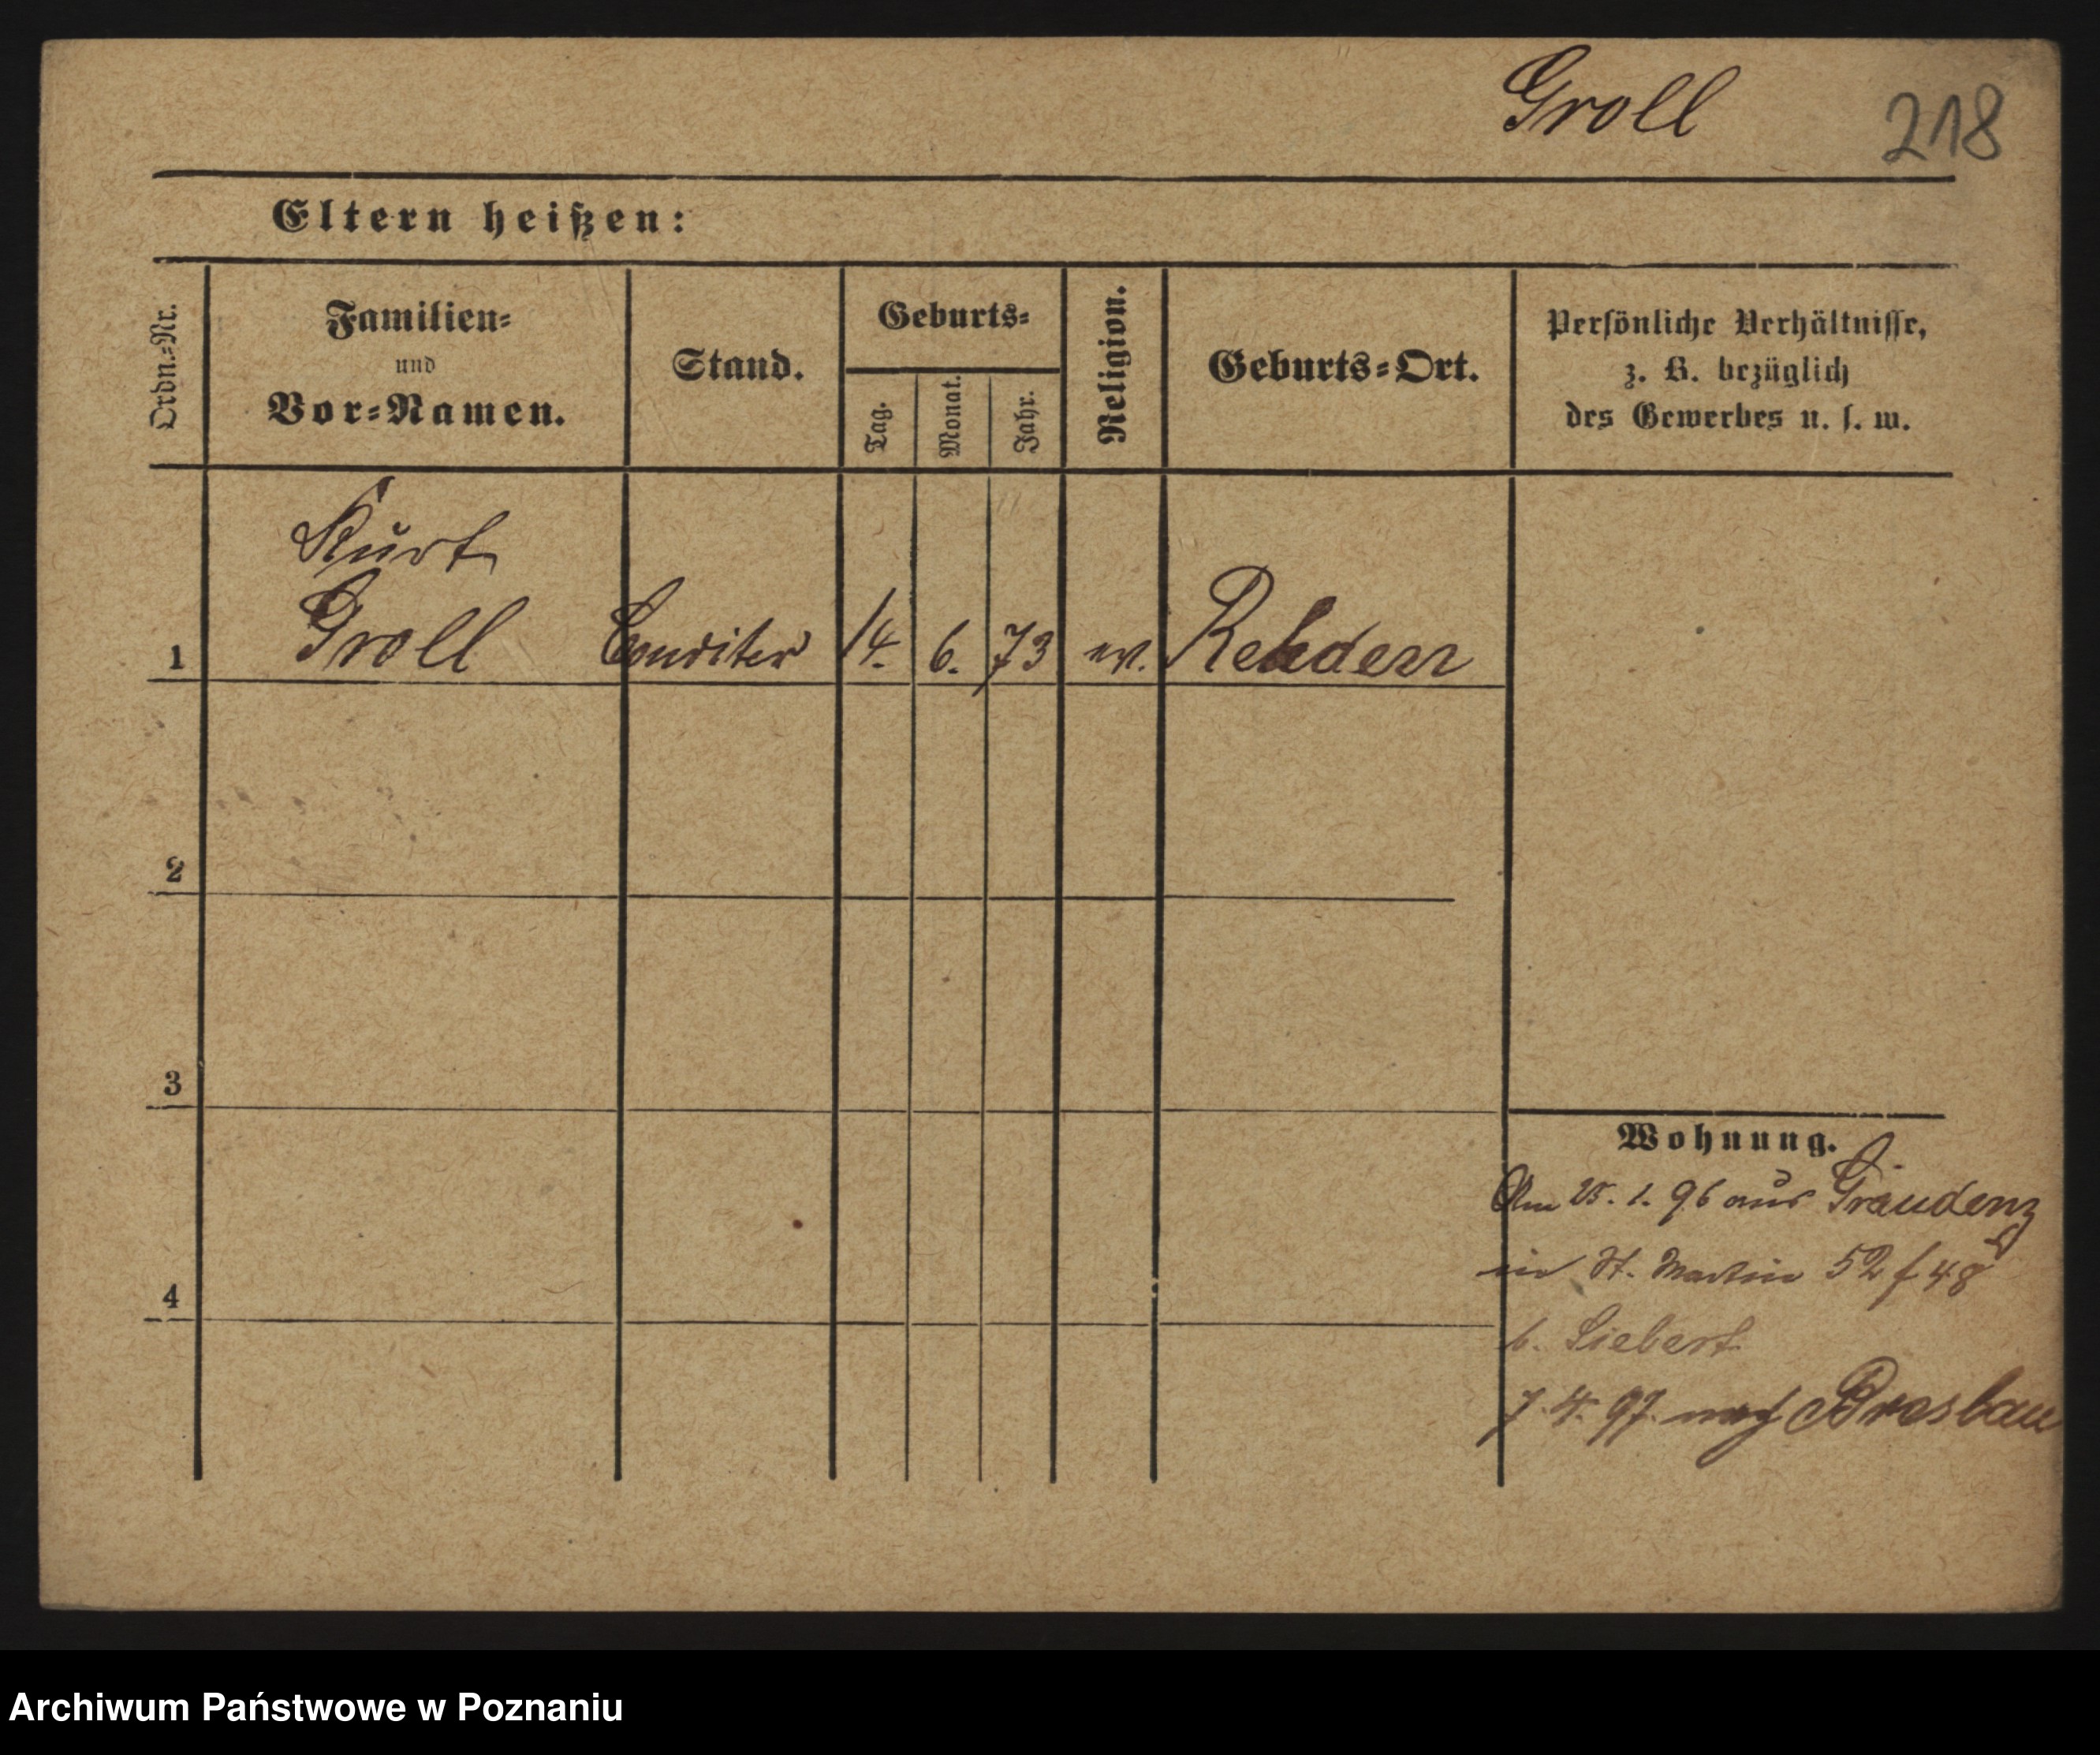 Groll 218
Eltern heißen:
Ordn.=Nr.
Familien=
und
Vor=Namen.
Stand.
Geburts=
Tag.
Monat.
Jahr.
Religion.
Geburts=Ort.
Persönliche Verhältnisse,
z. B. bezüglich
des Gewerbes u. s. w.
Kurt
1 Groll Conditer 14. 6. 73 ev. Rehden
2
3
4
Wohnung.
Am 25. 1. 96 aus Graudenz
in St. Martin 52 f 48
b. Siebert
7. 4. 97. nach Breslau
Archiwum Państwowe w Poznaniu